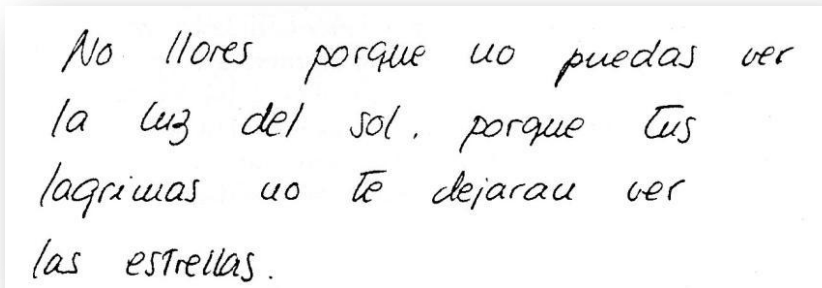 No llores porque no puedas ver
la luz del sol. porque tus
lagrimas no te dejaran ver
las estrellas.